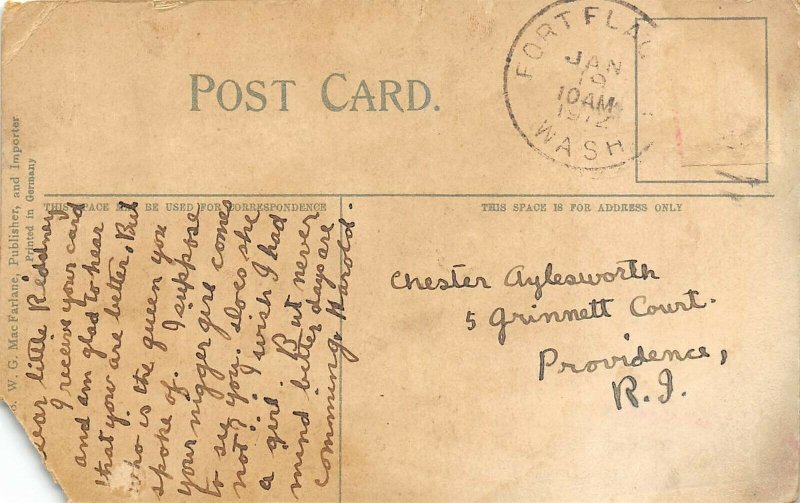 POST CARD.
FORT FLAG
JAN
19
10 AM
1912
WASH.
W. G. MacFarlane, Publisher, and Importer
Printed in Germany
THIS SPACE MAY BE USED FOR CORRESPONDENCE
THIS SPACE IS FOR ADDRESS ONLY
ear little Kiddney
I receive your card
and am glad to hear
that your are better, But
who is the queen you
spoke of. I suppose
your nigger girl comes
to see you. does she
not?. I wish I had
a girl. But never
mind better days are
comming. Harold.
Chester Aylesworth
5 Grinnett Court.
Providence,
R. I.